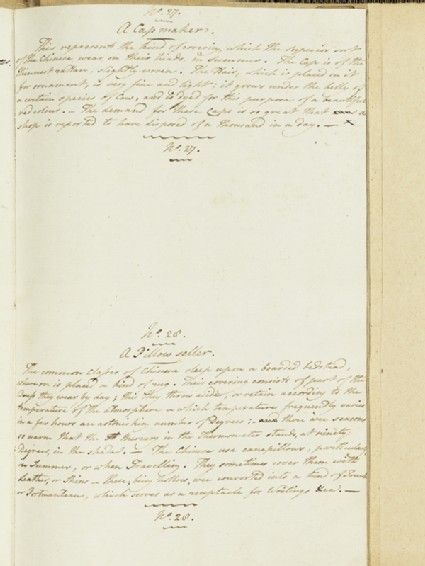 No. 27.
A Cap maker.
This represents the kind of covering which the superior sort
of the Chinese wear on their heads, in Summer. The Cap is of the
finest rattan, slightly woven. The Hair, which is placed on it
for ornament, is very fine and light; it grows under the belly of
a certain species of Cow, and is dyed for this purpose of a beautiful
red colour. The demand for these Caps is so great that one
shop is reported to have disposed of a thousand in a day.
No. 27.
No. 28.
A Pillow seller.
The common Classes of Chinese sleep upon a boarded bedstead,
whereon is placed a kind of rug. This covering consists of part of the
they wear by day; this they throw aside, or retain according to the
temperature of the atmosphere in which temperature frequently varies
in a few hours an astonishing number of degrees: and there are seasons
so warm that the Mercury in the thermometer stands at ninety
degrees, in the shade. The Chinese use pillows, particularly
in Summer, or when Travelling. They sometimes cover them with
leather, or Skins. These, being hollow, are converted into a kind of
or Portmanteau, which serves as a receptacle for writings &ca.
No. 28.